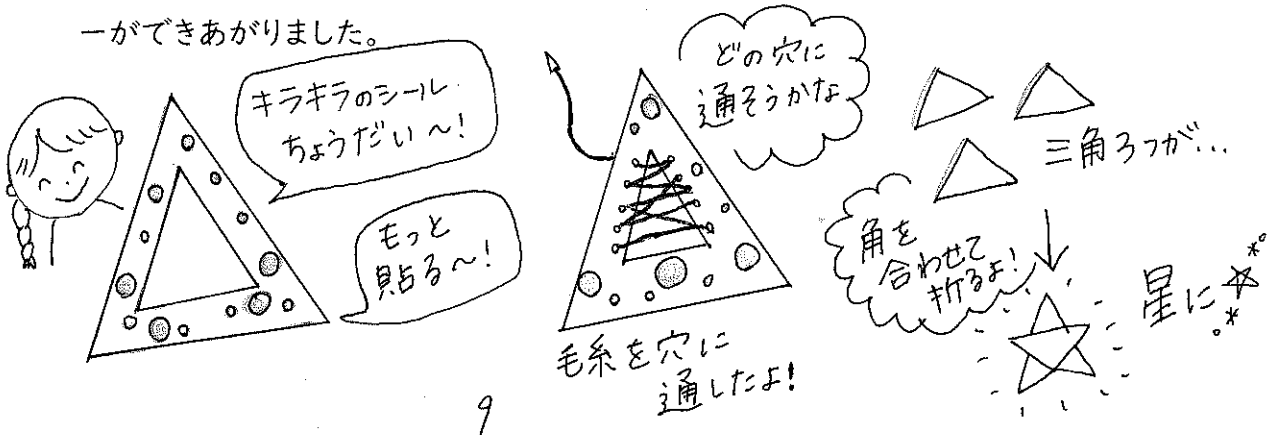 ーができあがりました。
キラキラのシール
ちょうだい～!
もっと
貼る～!
どの穴に
通そうかな
毛糸を穴に
通したよ!
三角3つが...
角を
合わせて
折るよ!
星に
9